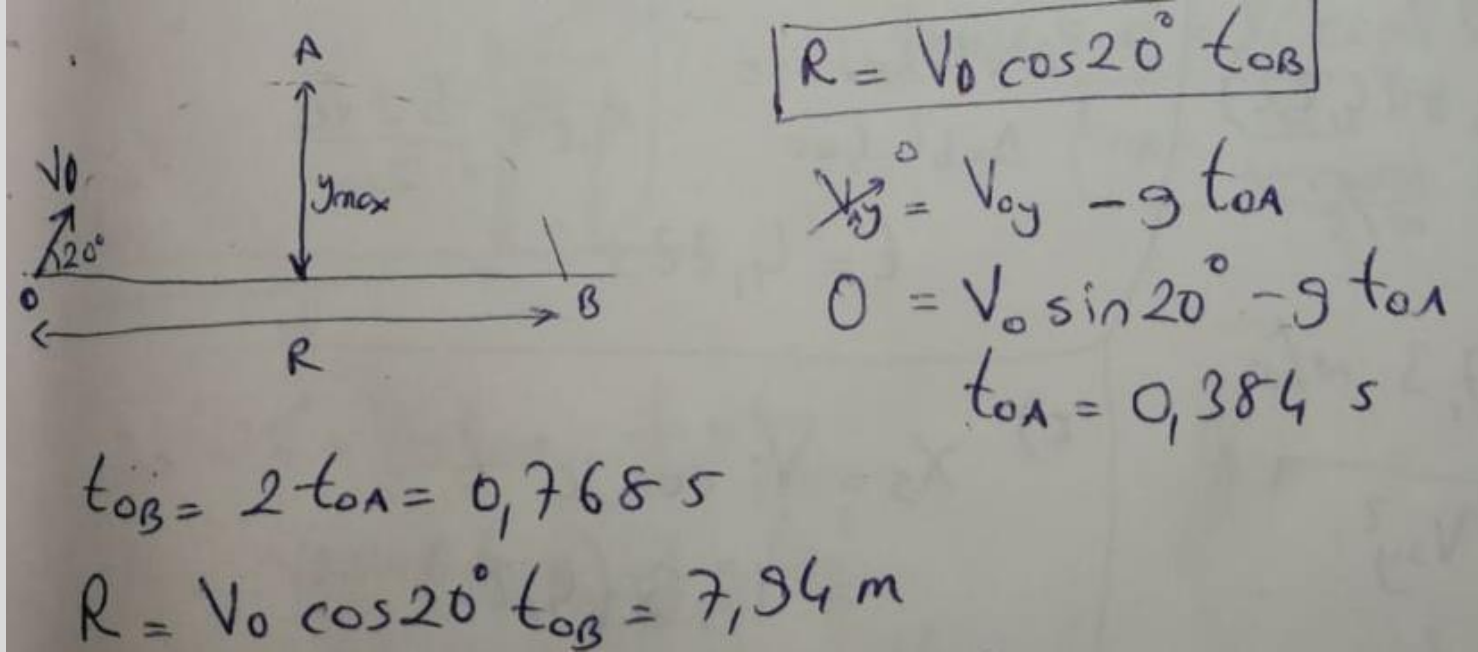 A
V0
20°
ymax
O
B
R
R = V0 cos20° tOB
VAy = 0 = V0y - g tOA
0 = V0 sin20° - g tOA
tOA = 0,384 s
tOB = 2 tOA = 0,768 s
R = V0 cos20° tOB = 7,94 m